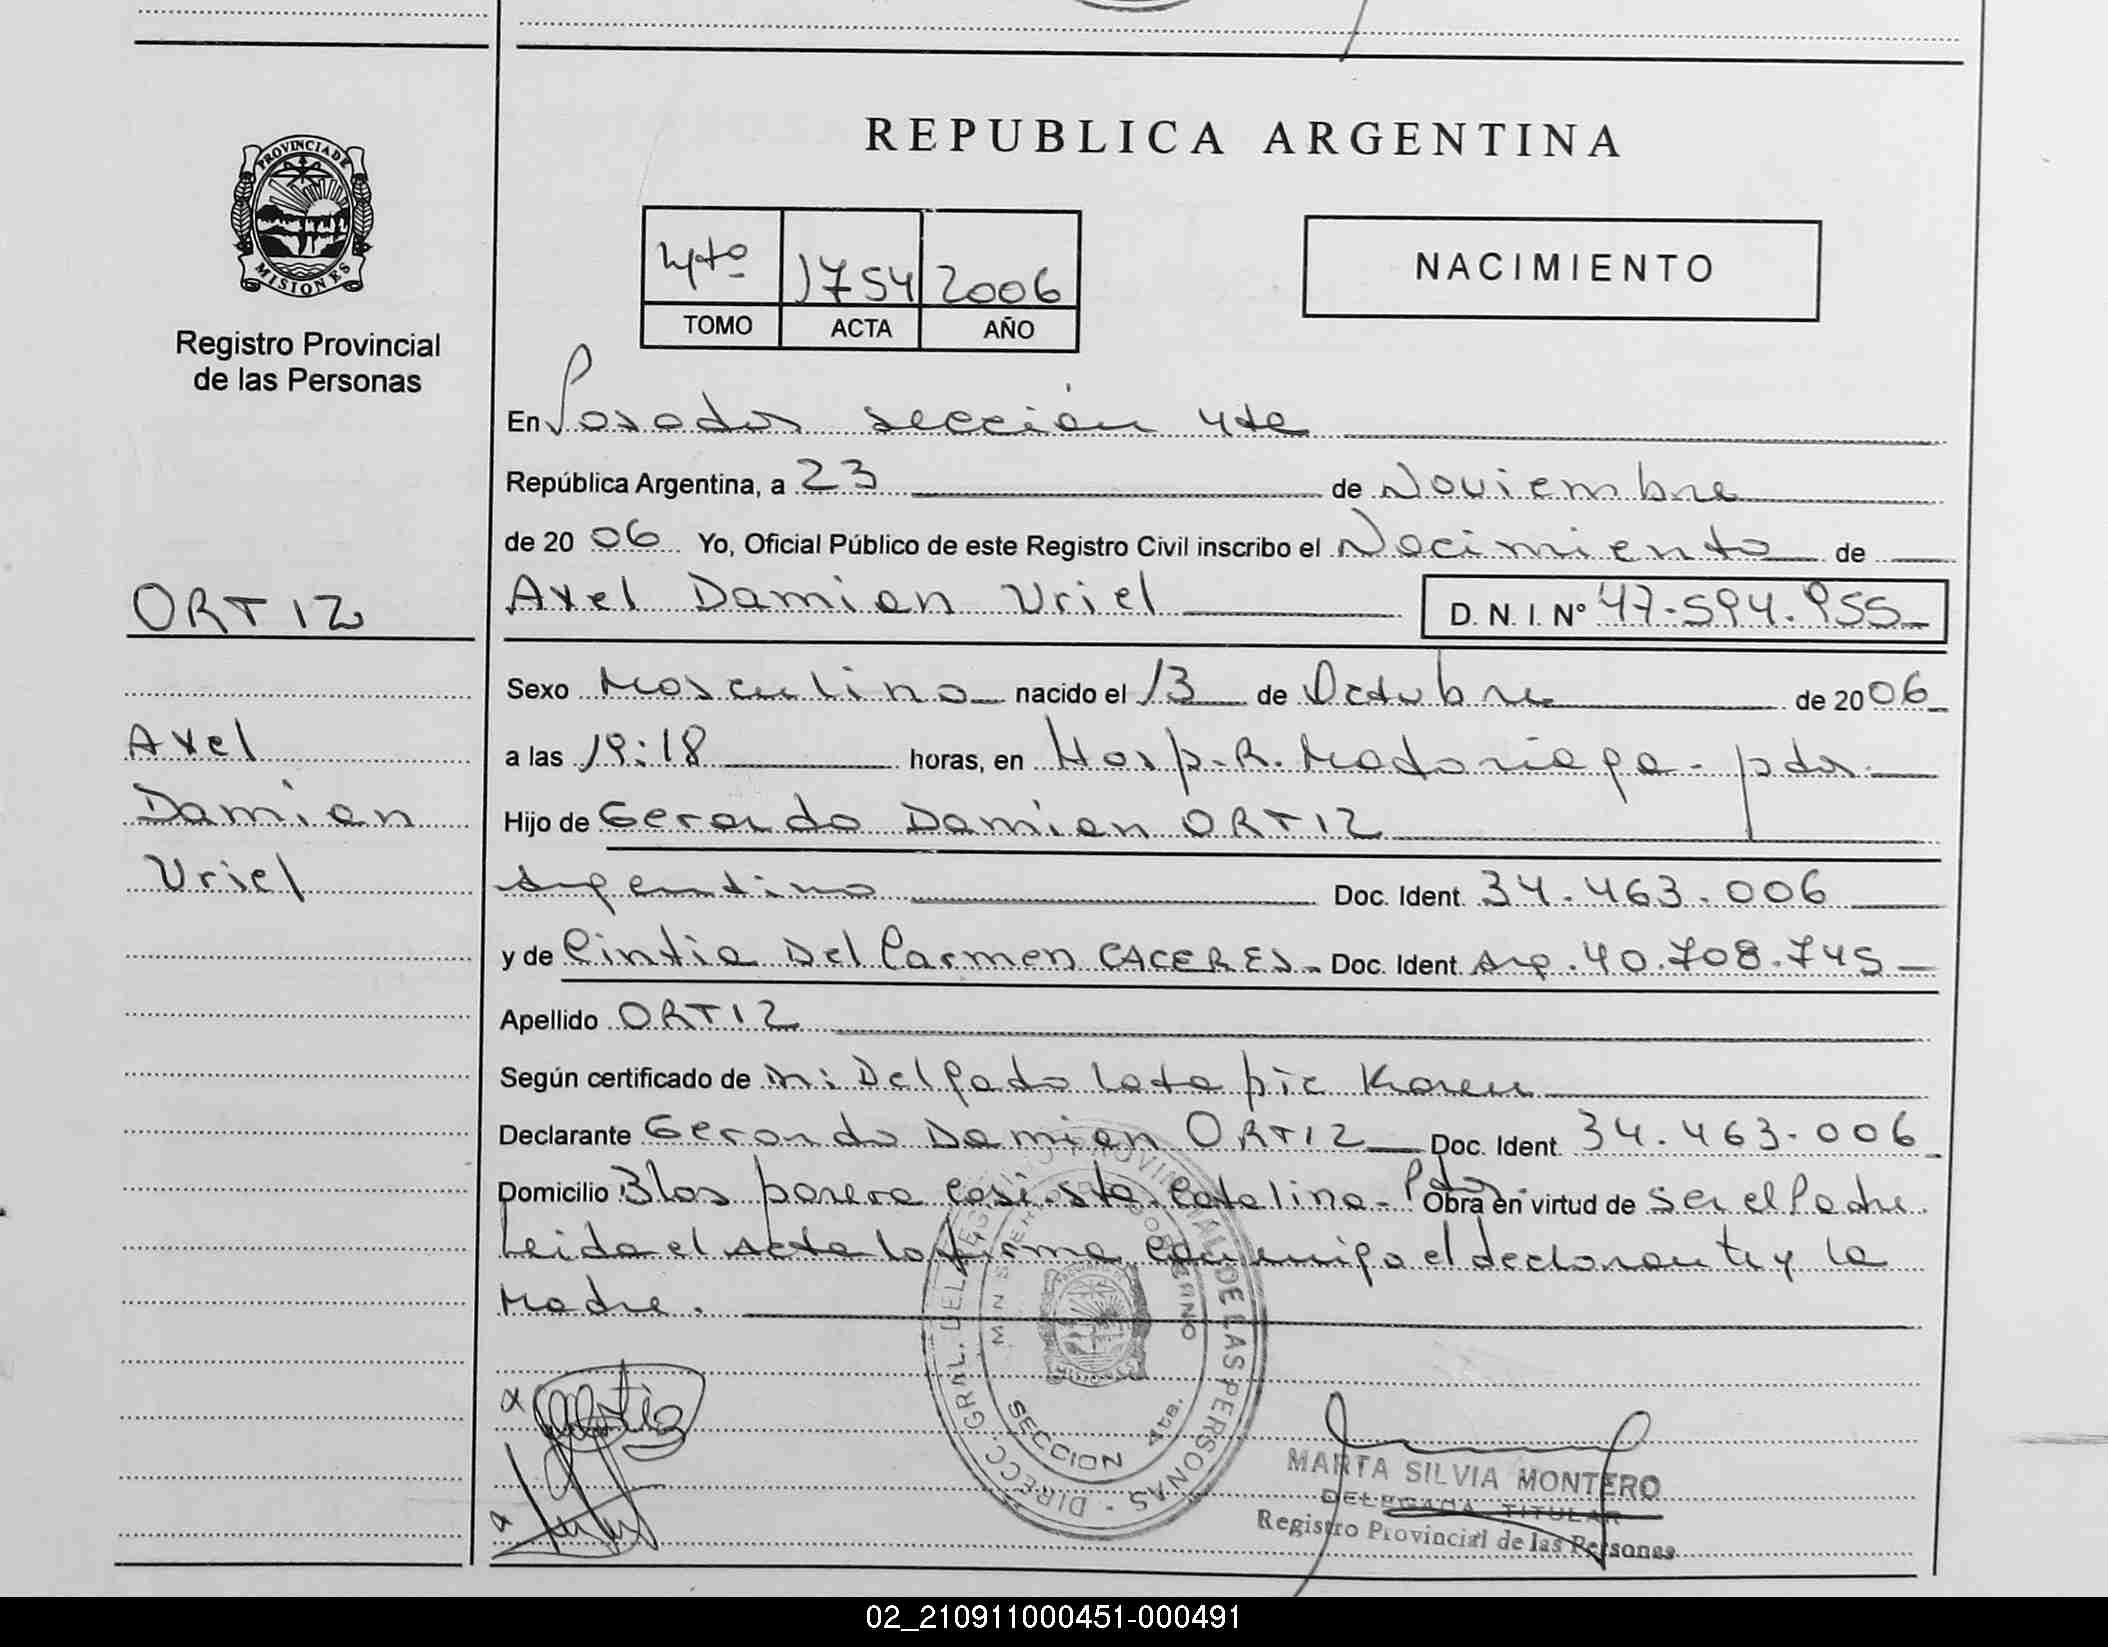 REPUBLICA ARGENTINA
PROVINCIA DE
MISIONES
Registro Provincial
de las Personas
4to 1754 2006
TOMO ACTA AÑO
NACIMIENTO
En Posadas sección 4ta
República Argentina, a 23 de Noviembre
de 2006 Yo, Oficial Público de este Registro Civil inscribo el Nacimiento de
ORTIZ
Axel Damian Uriel D. N. I. Nº 47.594.955
Sexo Masculino nacido el 13 de Octubre de 2006
Axel
a las 19:18 horas, en Hosp. R. Madariaga - pdas.
Damian
Hijo de Gerardo Damian ORTIZ
Uriel
argentino Doc. Ident. 34.463.006
y de Cintia Del Carmen CACERES - Doc. Ident. arg. 40.708.745
Apellido ORTIZ
Según certificado de Delgado Karen
Declarante Gerardo Damian ORTIZ Doc. Ident. 34.463.006
Domicilio Blas parera casi sta. Catalina - Pdas. Obra en virtud de ser el Padre.
Leida el acta la firma conmigo el declarante y la
Madre.
DIRECC. GRAL. DEL REGISTRO PROVINCIAL DE LAS PERSONAS
SECCION 4ta.
MARTA SILVIA MONTERO
DELEGADA TITULAR
Registro Provincial de las Personas
02_210911000451-000491